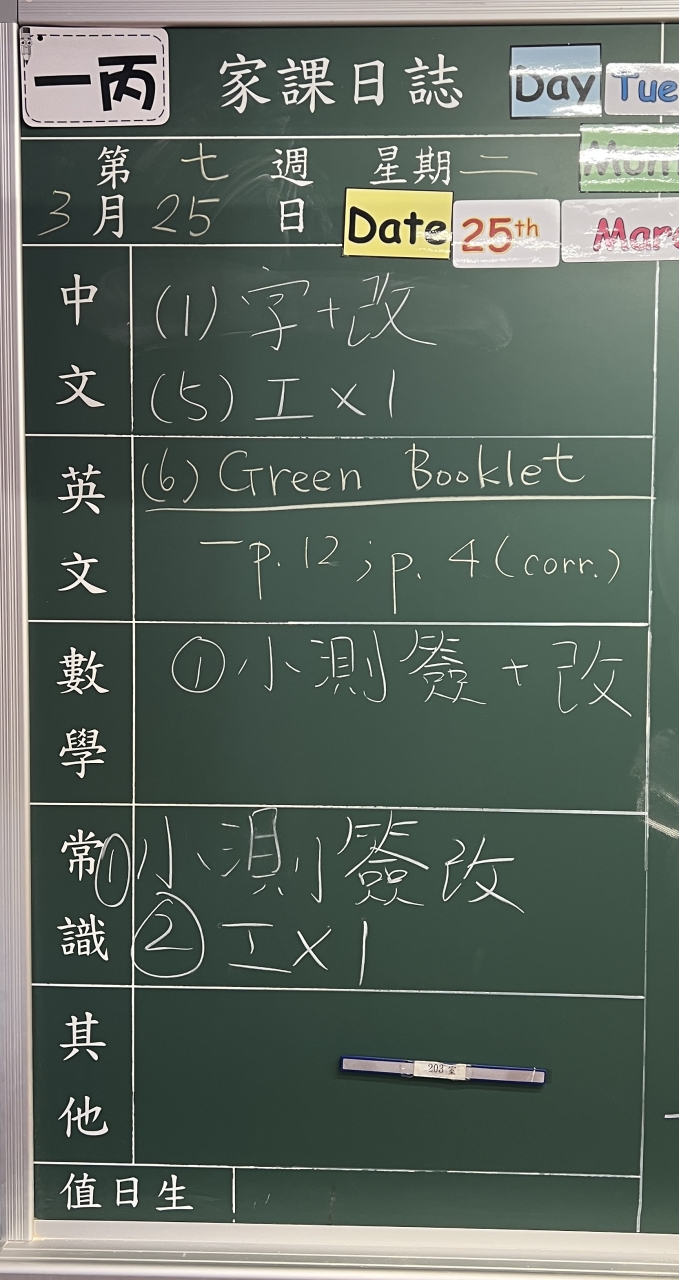 一丙 家課日誌 Day Tue
第 七 週 星期 二
3 月 25 日 Date 25th
中文
(1) 字+改
(5) 工 x 1
英文
(6) Green Booklet
- p. 12 ; p. 4 (corr.)
數學
① 小測簽 + 改
常識
① 小測簽改
② 工 x 1
其他
203 室
值日生